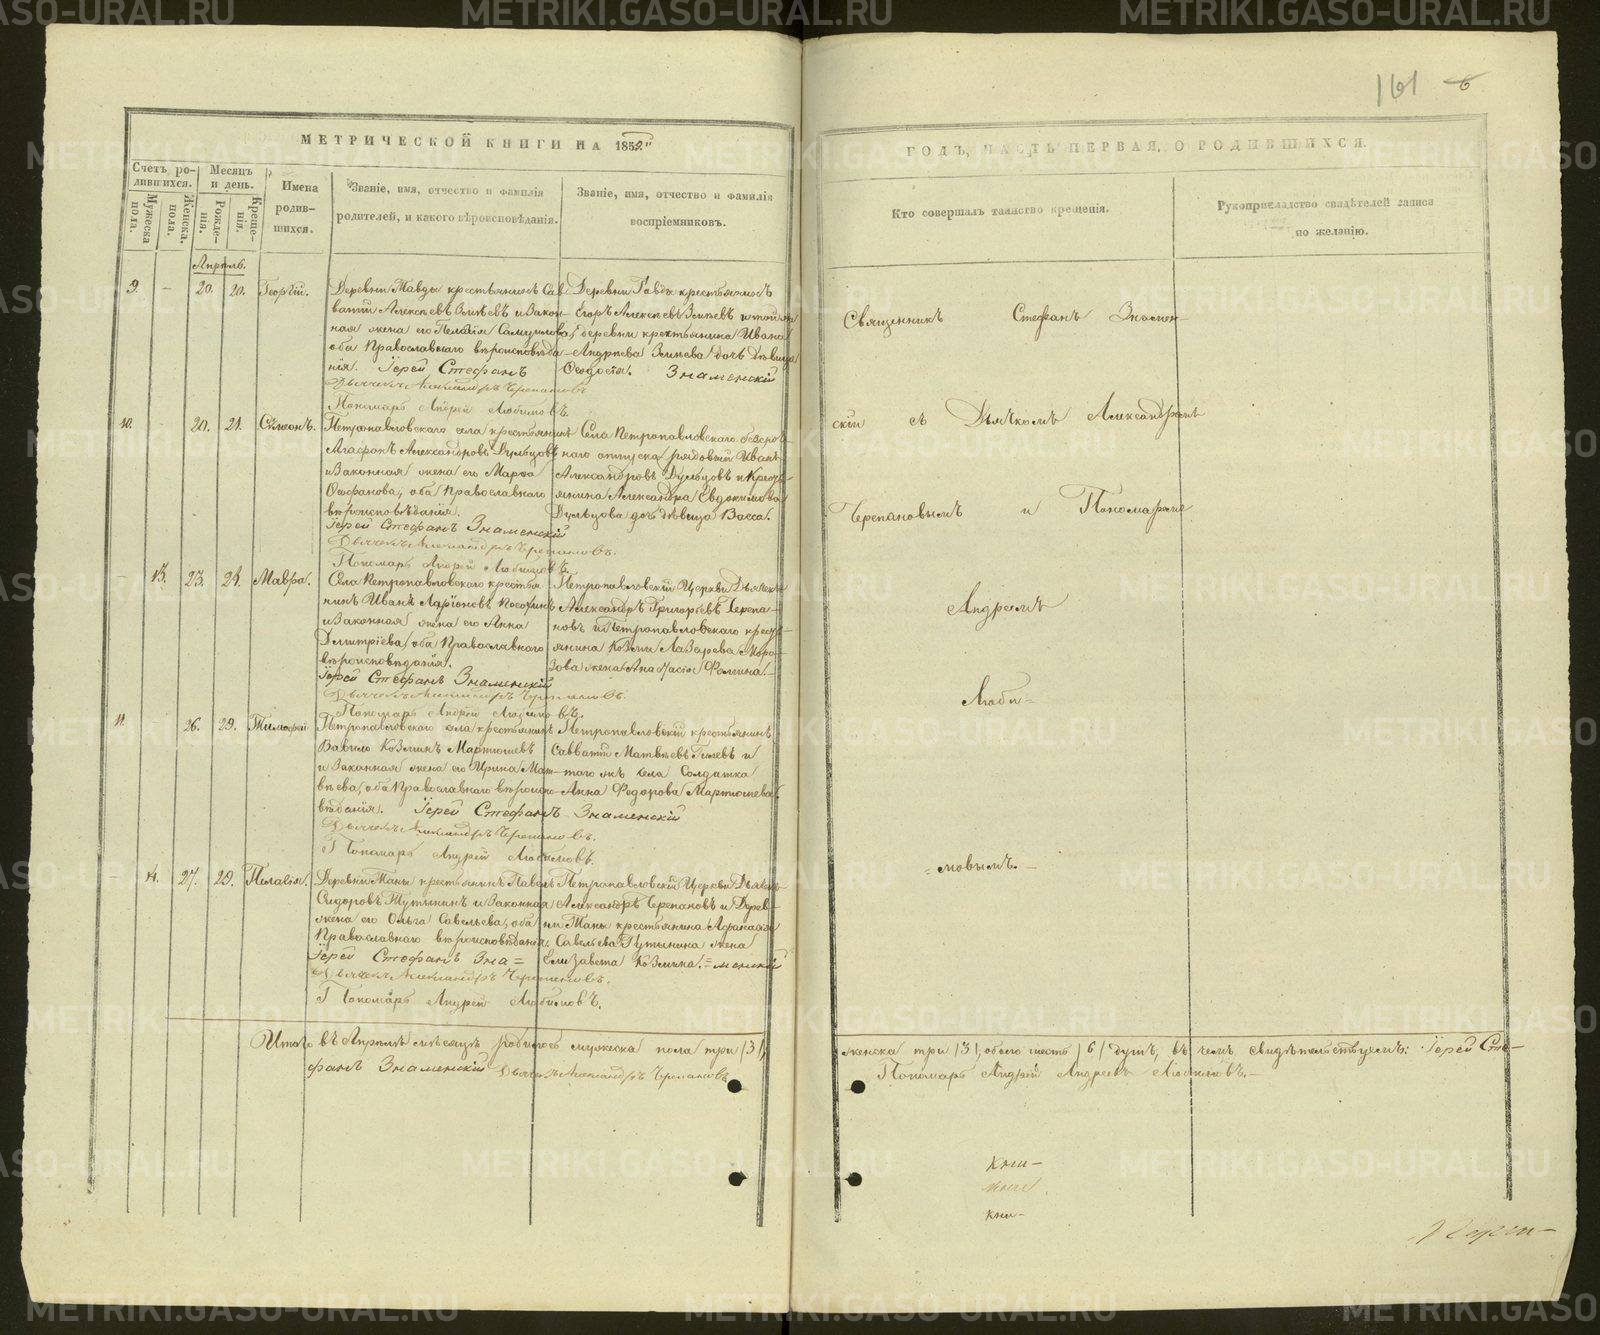 161 6
МЕТРИЧЕСКОЙ КНИГИ НА 1852
ГОДЪ, ЧАСТЬ ПЕРВАЯ, О РОДИВШИХСЯ.
Счетъ ро-
дившихся.
Мужеска пола.
Женска. пола.
Месяцъ
и день.
Рожде-
нія.
Креще-
нія.
Имена
родив-
шихся.
Званіе, имя, отчество и фамилія
родителей, и какого вѣроисповѣданія.
Званіе, имя, отчество и фамилія
воспріемниковъ.
Кто совершалъ таинство крещенія.
Рукоприкладство свидѣтелей записи
по желанію.
Апрѣль.
9. — 20. 20. Георгій.
Деревни Тавды крестьянинъ Сав-
ватій Алексѣевъ Зинѣевъ и Закон-
ная жена его Пелагія Самуилова,
оба Православнаго вѣроисповѣда-
нія. Іерей Стефанъ Знаменскій
Дьячекъ Александръ Черепановъ
Пономарь Андрей Любимовъ.
Деревни Тавды крестьянинъ
Егоръ Алексѣевъ Зинѣевъ и той же
деревни крестьянина Ивана
Андреева Зинѣева дочь дѣвица
Ѳедосія.
10. 20. 21. Сѵмеонъ.
Петропавловскаго села крестьянинъ
Агафонъ Александровъ Дульцовъ
и Законная жена его Марѳа
Ѳеофанова, оба Православнаго
вѣроисповѣданія.
Іерей Стефанъ Знаменскій
Дьячекъ Александръ Черепановъ.
Пономарь Андрей Любимовъ.
Села Петропавловскаго безсроч-
наго отпуска рядовый Иванъ
Александровъ Дульцовъ и Крестья-
янина Александра Евдокимова
Дульцова дочь дѣвица Васса.
13. 23. 24. Мавра.
Села Петропавловскаго крестья-
нинъ Иванъ Ларіоновъ
и Законная жена его Анна
Дмитріева, оба Православнаго
вѣроисповѣданія.
Іерей Стефанъ Знаменскій
Дьячекъ Александръ Черепановъ.
Пономарь Андрей Любимовъ.
Петропавловскій Церкви Дьячекъ
Александръ Григорьевъ Черепа-
новъ и Петропавловскаго кресть-
янина Козмы Лазарева Моро-
зова жена Анастасія Фомина.
11. 26. 29. Тимоѳей
Петропавловскаго села крестьянинъ
Вавило Козминъ Мартюшевъ
и Законная жена его Ирина Мат-
вѣева, оба Православнаго вѣроиспо-
вѣданія. Іерей Стефанъ Знаменскій
Дьячекъ Александръ Черепановъ.
Пономарь Андрей Любимовъ.
Петропавловскій крестьянинъ
Савватій Матвѣевъ и
того жъ села Солдатка
Анна Федорова Мартюшева.
14. 27. 29. Пелагія.
Деревни Таны крестьянинъ Павелъ
Сидоровъ Путынинъ и Законная
жена его Ольга Савельева, оба
Православнаго вѣроисповѣданія.
Іерей Стефанъ Зна= =менскій
Дьячекъ Александръ Черепановъ.
Пономарь Андрей Любимовъ.
Петропавловскій Церкви Дьячекъ
Александръ Черепановъ и Дерев-
ни Таны крестьянина Афанасія
Савельева Путынина жена
Елизавета Козмина.
Священникъ Стефанъ Знамен-
скій съ Дьячкомъ Александромъ
Черепановымъ и Пономаремъ
Андреемъ
Люби=
=мовымъ.
Итого въ Апрѣлѣ мѣсяцѣ родилось мужеска пола три /3/, женска три /3/, обоего шесть /6/ душъ, въ чемъ свидѣтельствуемъ: Іерей Сте-
фанъ Знаменскій Дьячекъ Александръ Черепановъ Пономарь Андрей Андреевъ Любимовъ.
кни-
кни-